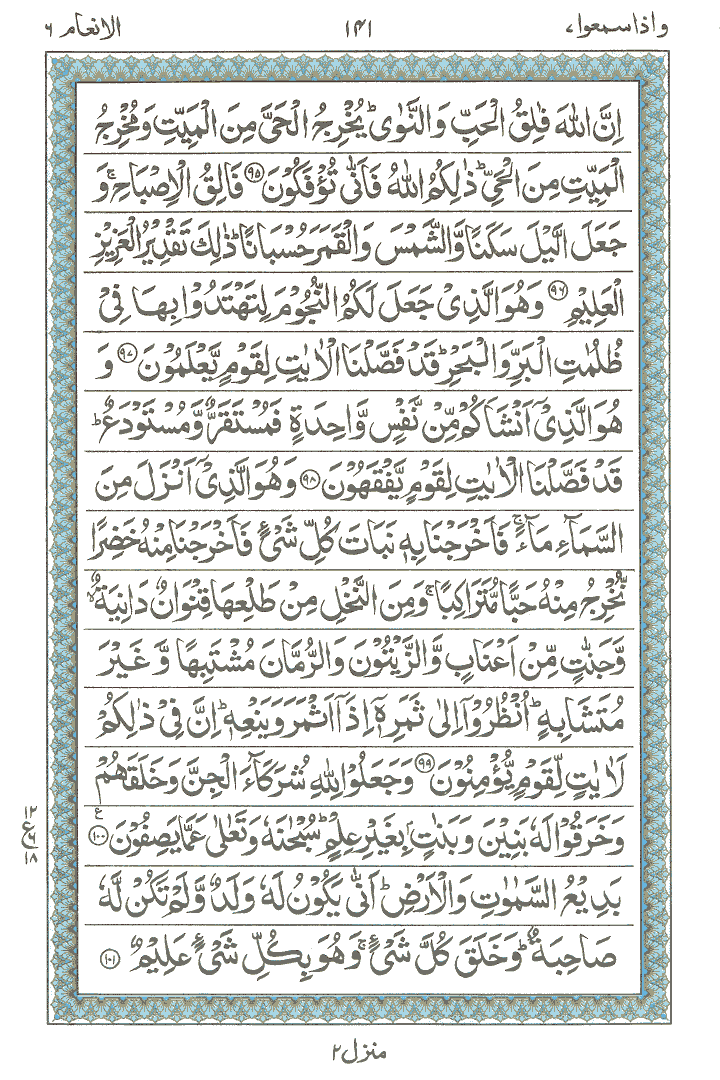 واذا سمعوا ٧
١٤١
الانعام ٦
اِنَّ اللّٰهَ فَالِقُ الْحَبِّ وَالنَّوٰى ؕ يُخْرِجُ الْحَىَّ مِنَ الْمَيِّتِ وَمُخْرِجُ
الْمَيِّتِ مِنَ الْحَىِّ ؕ ذٰلِكُمُ اللّٰهُ فَاَنّٰى تُؤْفَكُوْنَ ﴿۹۵﴾ فَالِقُ الْاِصْبَاحِ ۚ وَ
جَعَلَ الَّيْلَ سَكَنًا وَّالشَّمْسَ وَالْقَمَرَ حُسْبَانًا ؕ ذٰلِكَ تَقْدِيْرُ الْعَزِيْزِ
الْعَلِيْمِ ﴿۹۶﴾ وَهُوَ الَّذِىْ جَعَلَ لَكُمُ النُّجُوْمَ لِتَهْتَدُوْا بِهَا فِىْ
ظُلُمٰتِ الْبَرِّ وَالْبَحْرِ ؕ قَدْ فَصَّلْنَا الْاٰيٰتِ لِقَوْمٍ يَّعْلَمُوْنَ ﴿۹۷﴾ وَ
هُوَ الَّذِىْۤ اَنْشَاَكُمْ مِّنْ نَّفْسٍ وَّاحِدَةٍ فَمُسْتَقَرٌّ وَّمُسْتَوْدَعٌ ؕ
قَدْ فَصَّلْنَا الْاٰيٰتِ لِقَوْمٍ يَّفْقَهُوْنَ ﴿۹۸﴾ وَهُوَ الَّذِىْۤ اَنْزَلَ مِنَ
السَّمَآءِ مَآءً ۚ فَاَخْرَجْنَا بِهٖ نَبَاتَ كُلِّ شَىْءٍ فَاَخْرَجْنَا مِنْهُ خَضِرًا
نُّخْرِجُ مِنْهُ حَبًّا مُّتَرَاكِبًا ۚ وَمِنَ النَّخْلِ مِنْ طَلْعِهَا قِنْوَانٌ دَانِيَةٌ ۙ
وَّجَنّٰتٍ مِّنْ اَعْنَابٍ وَّالزَّيْتُوْنَ وَالرُّمَّانَ مُشْتَبِهًا وَّغَيْرَ
مُتَشَابِهٍ ؕ اُنْظُرُوْۤا اِلٰى ثَمَرِهٖۤ اِذَاۤ اَثْمَرَ وَيَنْعِهٖ ؕ اِنَّ فِىْ ذٰلِكُمْ
لَاٰيٰتٍ لِّقَوْمٍ يُّؤْمِنُوْنَ ﴿۹۹﴾ وَجَعَلُوْا لِلّٰهِ شُرَكَآءَ الْجِنَّ وَخَلَقَهُمْ
وَخَرَقُوْا لَهٗ بَنِيْنَ وَبَنٰتٍۭ بِغَيْرِ عِلْمٍ ؕ سُبْحٰنَهٗ وَتَعٰلٰى عَمَّا يَصِفُوْنَ ﴿۱۰۰﴾ ع
١٢
ع ٦
١٨
بَدِيْعُ السَّمٰوٰتِ وَالْاَرْضِ ؕ اَنّٰى يَكُوْنُ لَهٗ وَلَدٌ وَّلَمْ تَكُنْ لَّهٗ
صَاحِبَةٌ ؕ وَخَلَقَ كُلَّ شَىْءٍ ۚ وَهُوَ بِكُلِّ شَىْءٍ عَلِيْمٌ ﴿۱۰۱﴾
منزل ٢